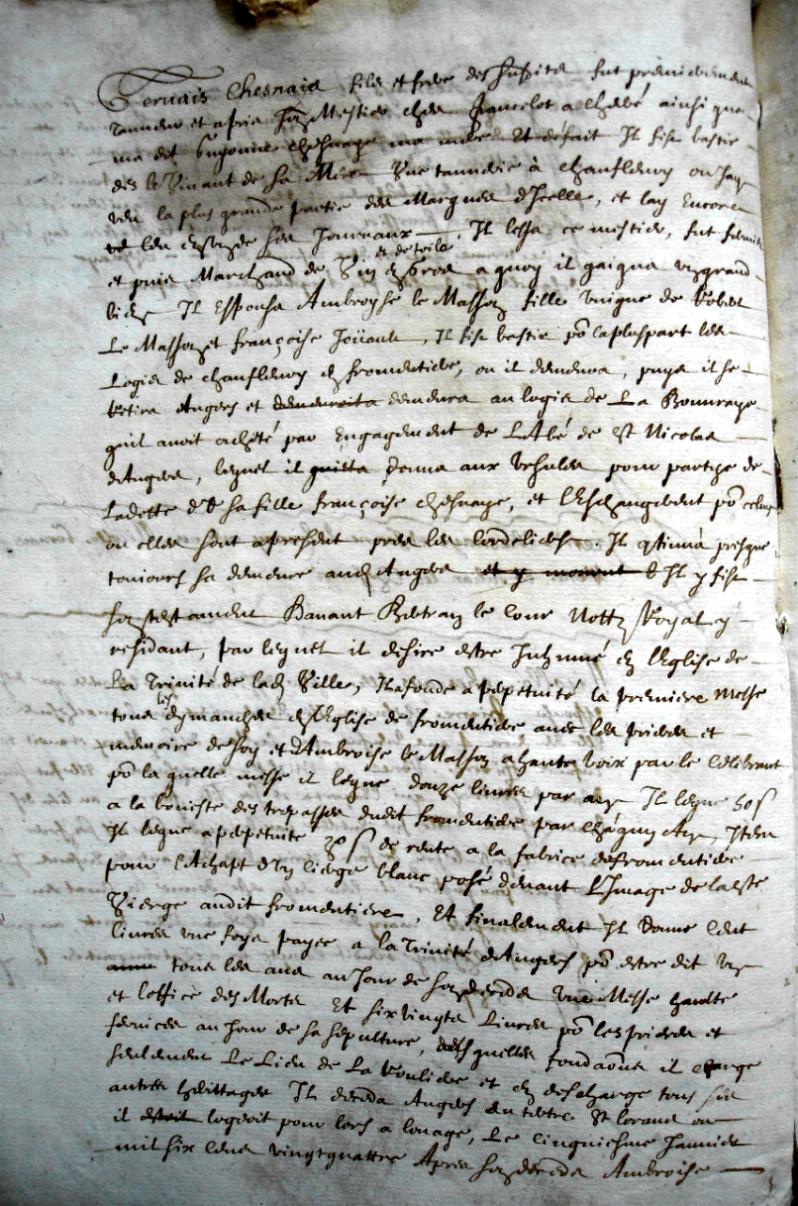 Gervais Chesnaie filz et frere des susdits fut premierement
Tanneur et apris son Mestier chez Lancelot a Chelé ainsi que
ma dit Hugonne Chesnaye ma mere Il fist bastir
dès le vivant de sa Mere Une tannerie à Chanfleury ou Jay
veu la plus grande partie des Marques d'Icelle, et lay Encore
veu les de ses Journaux . Il lessa ce mestier, fut fermier
et puis Marchand de Vin en gros et de toile a quoy il gaigna un grand
bien Il Espousa Ambroyse le Masson fille unique de Robert
Le Masson et françoise Joüault, Il fist bastir po la pluspart les
Logis de Chanfleury en fromentiere, ou il demeura, puys il se
Retira Angers et demeura au logis de La Bouveraye
quil avoit acheté par Engagement de L'Abé de St Nicolas
d'Angers, lequel il donna aux Ursules pour partye de
La dette de sa fille françoise Chesnaye, et l'Eschangerent po celuy
ou elles sont apresent pres les Cordeliers. Il continua presque
tousiours sa demeure aud Angers et y mourut & Il y fist
son testament Davant Bertrain le Cour Nottre Royal y
residant, par lequel il desire estre Inhumé en l'Eglise de
La Trinité de lad Ville, Il a fondé a perpetuité la premiere Messe
tous les dymanches en l'Eglise de fromentiere avec les prieres et
memoire de soy et d'Ambroise le Masson a haute voix par le Celebrant
po la quelle messe il legue douze livres par an Il legue 50 s
a la boueste des trepasses dudit fromentiere par chaqun An, Item
Il legue a perpetuité 30 s de rente a la fabrice de fromentiere
pour l'Achapt d'un Cierge blanc posé devant L'Image de la Ste
Vierge audit fromentiere, Et finalement Il Donne Cent
livres une foys payee a la Trinité d'Angers po estre dit un
tous les ans au Jour de son deceds Une Messe haulte
et l'office des Morts Et six vingts Livres po les prieres et
services au Jour de sa sepulture, desquelles fondaons il charge
seulement Le Lieu de La Rouliere et en descharge tous ses
autres heritages Il deceda Angers au tertre St Lorans ou
il logeoit pour lors a louage, Le Cinquiesme Janvier
mil six Cens vingt quattre Apres son deceds Ambroise